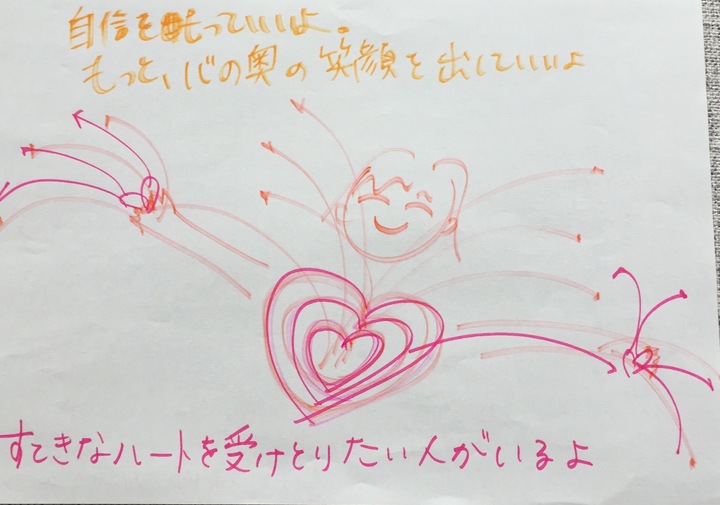 自信を持っていいよ。
もっと、心の奥の笑顔を出していいよ
すてきなハートを受けとりたい人がいるよ